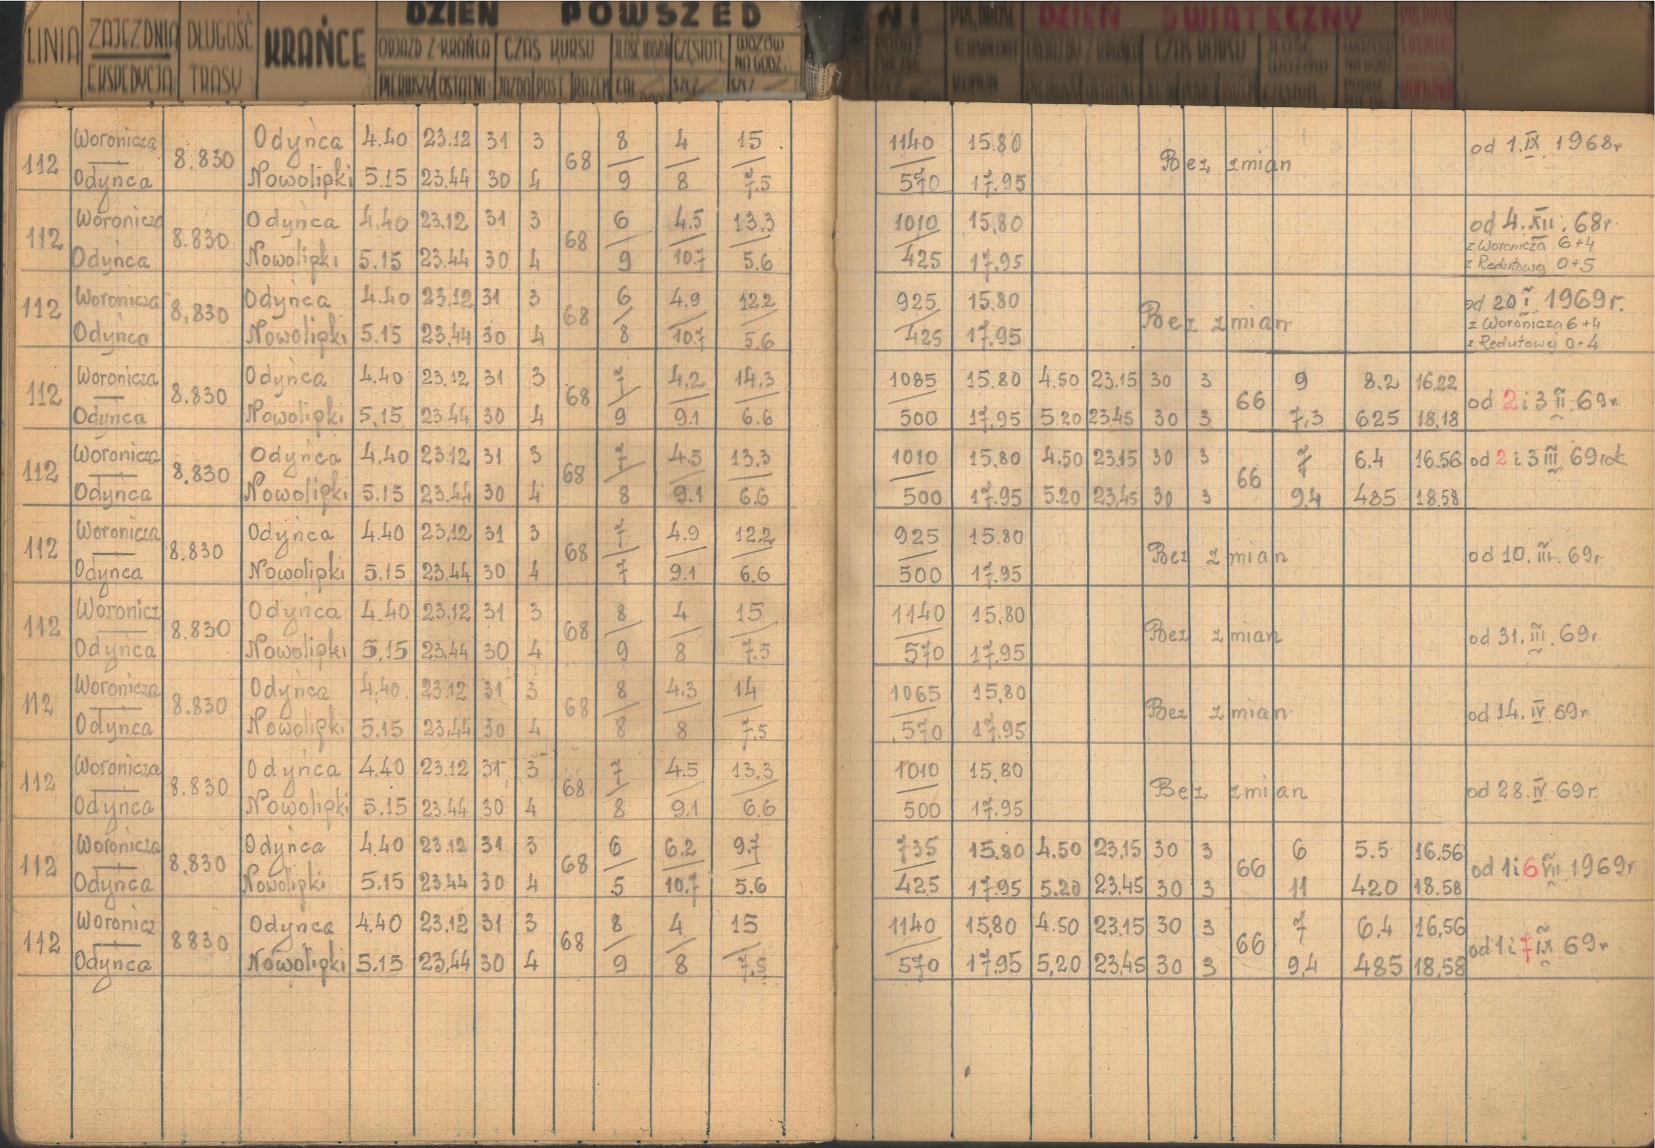 LINIA ZAJEZDNIA EKSPEDYCJA DŁUGOŚĆ TRASY KRAŃCE DZIEŃ POWSZEDNI DZIEŃ ŚWIĄTECZNY
ODJAZD Z KRAŃCA CZAS KURSU CZĘSTOTL. WOZÓW NA GODZ.
PIERWSZY OSTATNI JAZDA POST. RAZEM
Woronicza Odyńca 4.40 23.12 31 3 8 4 15 1140 15.80 od 1.IX 1968r
112 8.830 68 Bez zmian
Odyńca Nowolipki 5.15 23.44 30 4 9 8 7.5 570 17.95
Woronicza Odyńca 4.40 23.12 31 3 6 4.5 13.3 1010 15.80 od 4.XII.68r.
112 8.830 68 z Woronicza 6+4
Odyńca Nowolipki 5.15 23.44 30 4 9 10.7 5.6 425 17.95 z Redutowej 0+5
Woronicza Odyńca 4.40 23.12 31 3 6 4.9 12.2 925 15.80 od 20 I 1969r.
112 8.830 68 Bez zmian z Woronicza 6+4
Odyńca Nowolipki 5.15 23.44 30 4 8 10.7 5.6 425 17.95 z Redutowej 0+4
Woronicza Odyńca 4.40 23.12 31 3 7 4.2 14.3 1085 15.80 4.50 23.15 30 3 9 8.2 16.22
112 8.830 68 66 od 2 i 3 II. 69r.
Odyńca Nowolipki 5.15 23.44 30 4 9 9.1 6.6 500 17.95 5.20 23.45 30 3 7,3 625 18,18
Woronicza Odyńca 4.40 23.12 31 3 7 4.5 13.3 1010 15.80 4.50 23.15 30 3 7 6.4 16.56 od 2 i 3 III 69 rok
112 8.830 68 66
Odyńca Nowolipki 5.15 23.44 30 4 8 9.1 6.6 500 17.95 5.20 23.45 30 3 9,4 485 18.58
Woronicza Odyńca 4.40 23.12 31 3 7 4.9 12.2 925 15.80
112 8.830 68 Bez zmian od 10. III. 69r.
Odyńca Nowolipki 5.15 23.44 30 4 7 9.1 6.6 500 17.95
Woronicz Odyńca 4.40 23.12 31 3 8 4 15 1140 15.80
112 8.830 68 Bez zmian od 31. III. 69r.
Odyńca Nowolipki 5.15 23.44 30 4 9 8 7.5 570 17.95
Woronicza Odyńca 4.40 23.12 31 3 8 4.3 14 1065 15.80
112 8.830 68 Bez zmian od 14. IV. 69r
Odyńca Nowolipki 5.15 23.44 30 4 8 8 7.5 570 17.95
Woronicza Odyńca 4.40 23.12 31 3 7 4.5 13.3 1010 15.80
112 8.830 68 Bez zmian od 28. IV 69r.
Odyńca Nowolipki 5.15 23.44 30 4 8 9.1 6.6 500 17.95
Woronicza Odyńca 4.40 23.12 31 3 6 6.2 9.7 735 15.80 4.50 23.15 30 3 6 5.5 16.56
112 8.830 68 66 od 1 i 6 VII 1969r
Odyńca Nowolipki 5.15 23.44 30 4 5 10.7 5.6 425 17.95 5.20 23.45 30 3 11 420 18.58
Woronicz Odyńca 4.40 23.12 31 3 8 4 15 1140 15,80 4.50 23.15 30 3 7 6,4 16,56
112 8830 68 66 od 1 i 7 IX 69r
Odyńca Nowolipki 5.15 23.44 30 4 9 8 7.5 570 17.95 5,20 23,45 30 3 9,4 485 18,58